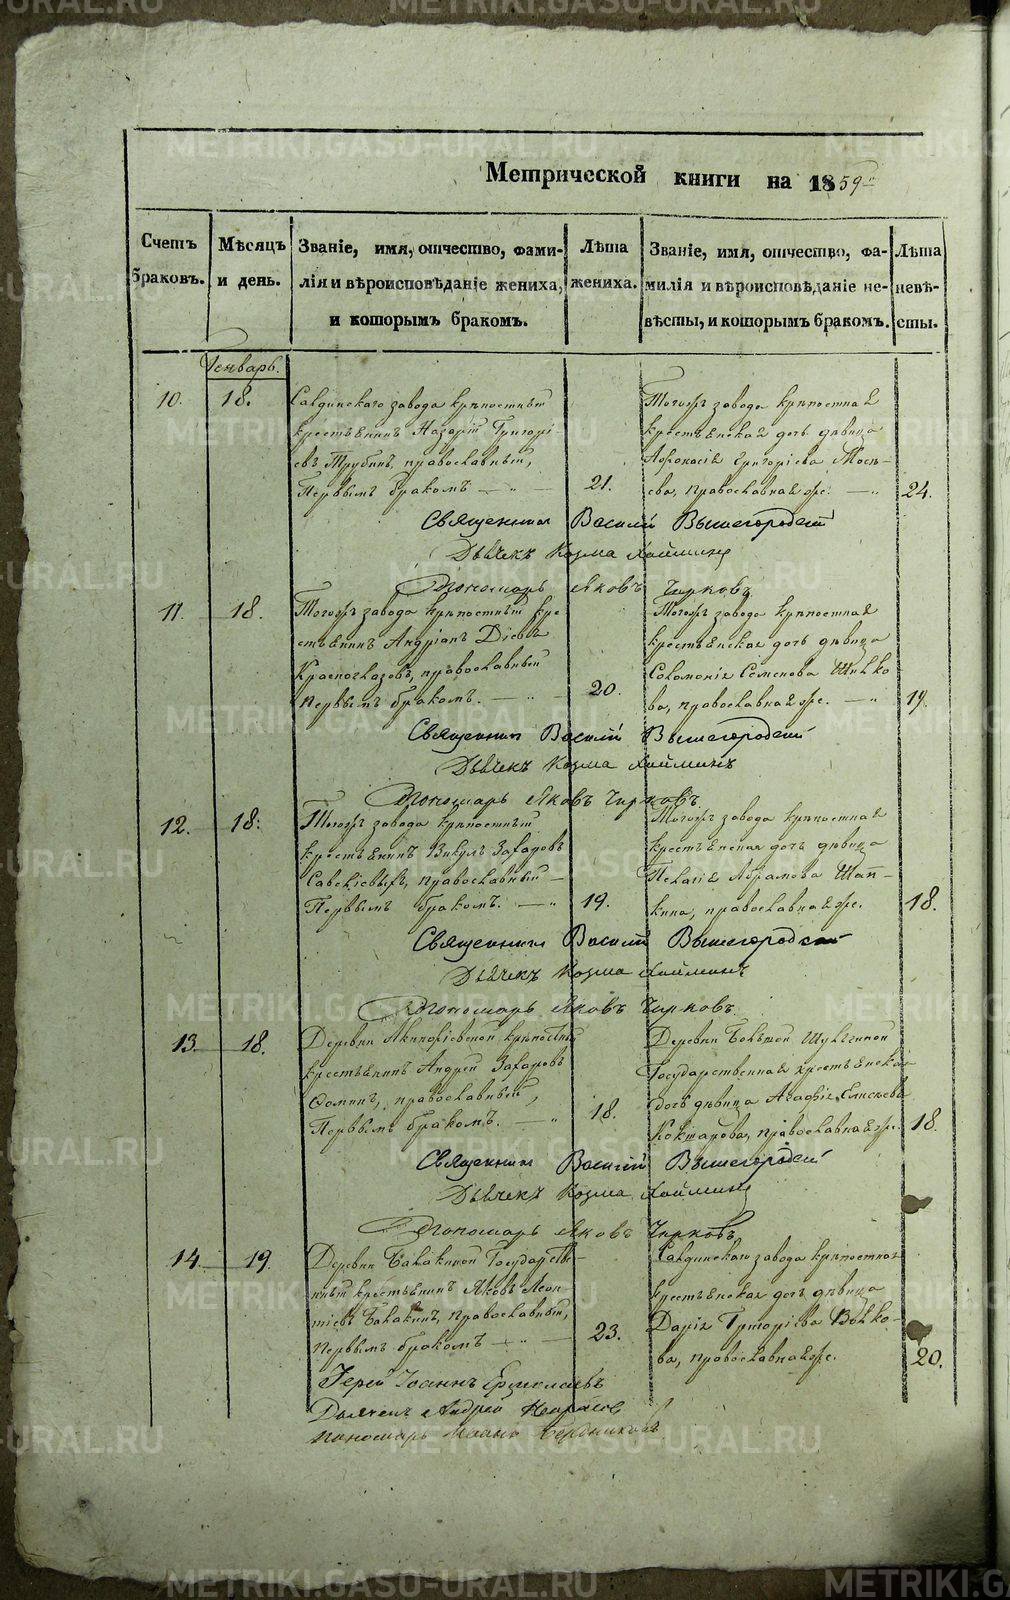 Метрической книги на 1859 г.
Счетъ браковъ.
Мѣсяцъ и день.
Званіе, имя, отчество, фами-
лія и вѣроисповѣданіе жениха,
и которымъ бракомъ.
Лѣта
жениха.
Званіе, имя, отчество, фа-
милія и вѣроисповѣданіе не-
вѣсты, и которымъ бракомъ.
Лѣта
невѣ-
сты.
Генварь.
10.
18.
Салдинскаго завода крѣпостный
крестьянинъ Назарій Григорі-
евъ Трубинъ, православный,
Первымъ бракомъ — „ —
21.
Тогожъ завода крѣпостная
крестьянская дочь дѣвица
Афонасія Григоріева
православная же. — „
24.
Священникъ Василій Вышегородскій
Дьячекъ Козма Хайминъ
Пономарь Яковъ Чирковъ
11.
18.
Тогожъ завода крѣпостный кре-
стьянинъ Андріанъ Діевъ
Красноглазовъ, православный
первымъ бракомъ. — „ —
20.
Тогожъ завода крѣпостная
крестьянская дочь дѣвица
Соломонія Семенова
ва, православная же. — „
19.
Священникъ Василій Вышегородскій
Дьячекъ Козма Хайминъ
Пономарь Яковъ Чирковъ
12.
18.
Тогожъ завода крѣпостный
крестьянинъ Викулъ Захаровъ
православный —
Первымъ бракомъ. — „
19.
Тогожъ завода крѣпостная
крестьянская дочь дѣвица
Пелагія Абрамова Шап-
кина, православная же.
18.
Священникъ Василій Вышегородскій
Дьячекъ Козма Хайминъ
Пономарь Яковъ Чирковъ
13.
18.
Деревни Акинфіевской крѣпостный
крестьянинъ Андрей Захаровъ
Фоминъ, православный,
Первымъ бракомъ. — „
18.
Деревни
Государственная крестьянская
дочь дѣвица Агафія Елисѣева
православная же.
18.
Священникъ Василій Вышегородскій
Дьячекъ Козма Хайминъ
Пономарь Яковъ Чирковъ
14.
19.
Деревни Балакиной Государстве-
нный крестьянинъ Яковъ Леон-
тіевъ Балакинъ, православный,
первымъ бракомъ — „ —
23.
Салдинскаго завода крѣпостная
крестьянская дочь дѣвица
Дарія Григоріева Волко-
ва, православная же.
20.
Іерей Іоаннъ Ермолаевъ
Дьячекъ Андрей
Пономарь Иванъ Бердниковъ
METRIKI.GASU-URAL.RU